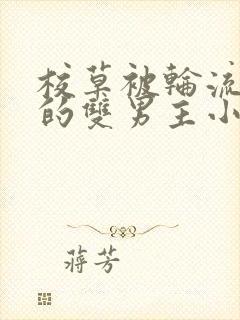 校草被輪流
的雙男主小
蔣芳